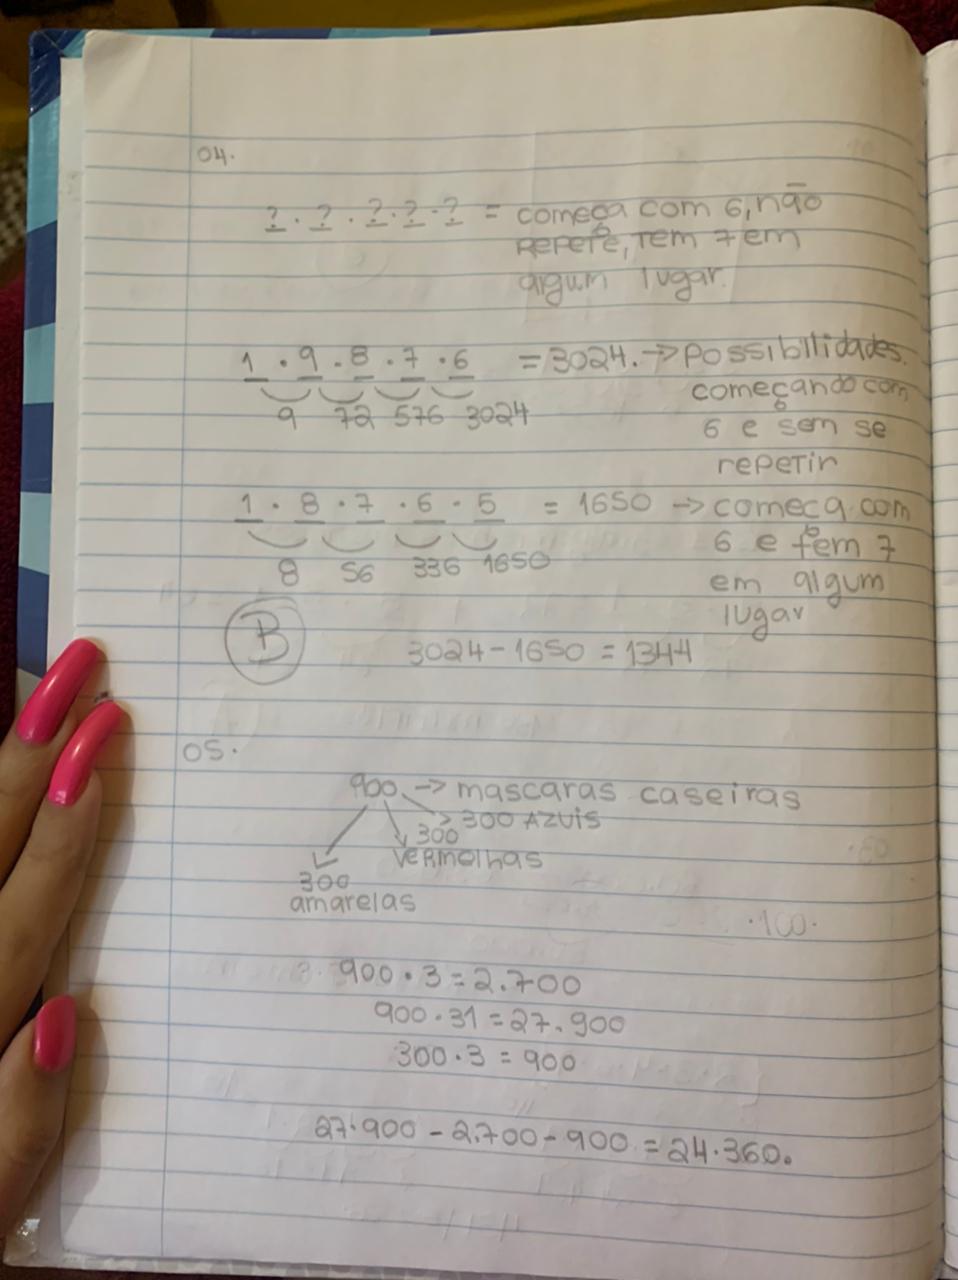 04.
? . ? . ? . ? . ? = começa com 6, não
repete, tem 7 em
algum lugar.
1 . 9 . 8 . 7 . 6 = 3024. -> possibilidades.
começando com
9 72 576 3024
6 e sem se
repetir
1 . 8 . 7 . 6 . 5 = 1650 -> começa com
6 e tem 7
8 56 336 1650
em algum
lugar
B 3024 - 1650 = 1344
05.
900 -> mascaras caseiras
300 Azuis
300
vermelhas
300
amarelas
.100.
900 . 3 = 2.700
900 . 31 = 27.900
300 . 3 = 900
27.900 - 2.700 - 900 = 24.360.